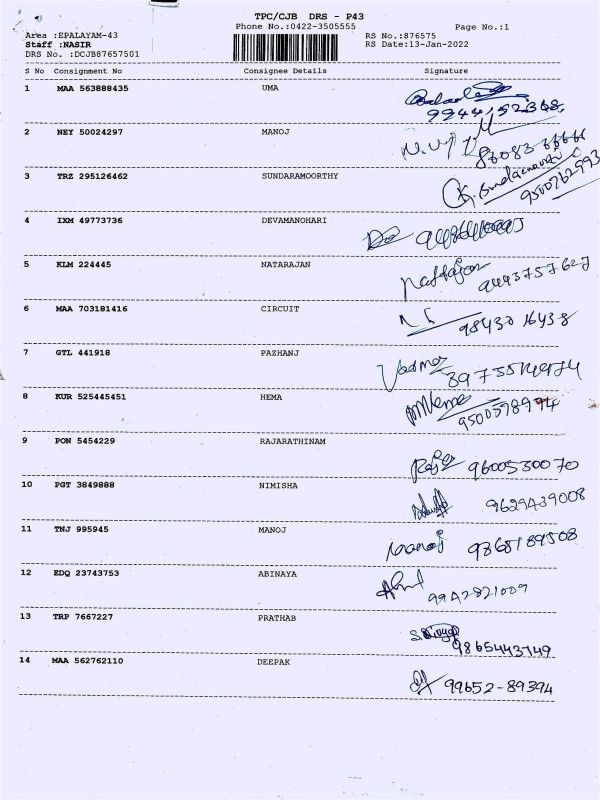 TPC/CJB DRS - P43
Phone No.:0422-3505555 Page No.:1
Area :EPALAYAM-43 RS No.:876575
Staff :NASIR RS Date:13-Jan-2022
DRS No. :DCJB87657501
S No Consignment No Consignee Details Signature
1 MAA 563888435 UMA
9944152368
2 NEY 50024297 MANOJ
3 TRZ 295126462 SUNDARAMOORTHY
9500762993
4 IXM 49773736 DEVAMANOHARI
5 KLM 224445 NATARAJAN Natrajan 9443757627
6 MAA 703181416 CIRCUIT 9843016438
7 GTL 441918 PAZHANJ
8 KUR 525445451 HEMA 9500598994
9 PON 5454229 RAJARATHINAM
9600530070
10 PGT 3849888 NIMISHA 9629439008
11 TNJ 995945 MANOJ Manoj 9865189508
12 EDQ 23743753 ABINAYA 9942821009
13 TRP 7667227 PRATHAB
9865443749
14 MAA 562762110 DEEPAK
99652-89394